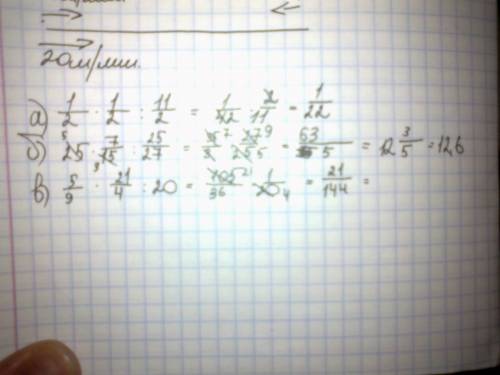 20м/мин.
а) 1/2 · 1/2 : 11/2 = 1/42 · 2/11 = 1/22
б) 25 · 7/15 : 25/27 = 27/25 = 63/5 = 12 3/5 = 12,6
в) 5/9 · 21/4 : 20 = 105/36 · 1/20 = 21/144 =